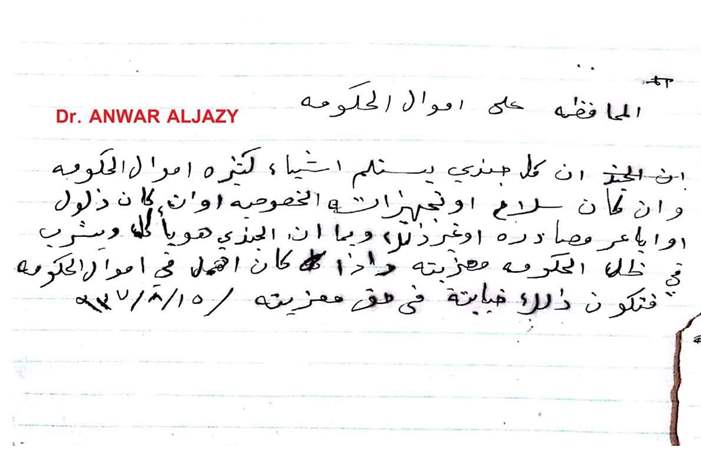 المحافظه على اموال الحكومه
Dr. ANWAR ALJAZY
ان كل جندي يستلم اشياء كثيره اموال الحكومه
وان كان سلاح او تجهيزات الخصوصيه اوان كان ذلول
او اباعر مصادره او غير ذلك وبما ان الجندي هو يأكل ويشرب
في ظل الحكومه معزبيته واذا كان اهمل في اموال الحكومه
فتكون ذلك خيانة في حق معزبيته / ٩٣٧/٨/١٥